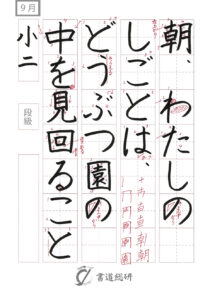 9月
朝、わたしの
しごとは、
どうぶつ園の
中を見回ること
小二
段級
十 古 直 卓 朝 朝
冂 円 周 園 園
書道総研